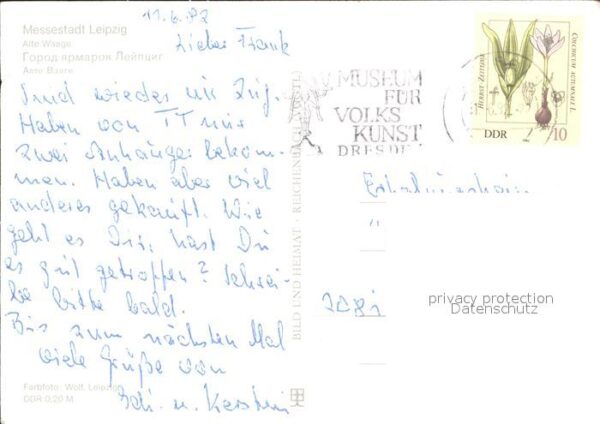 11.6.82
Messestadt Leipzig
Alte Waage
Город ярмарок Лейпциг
Алте Вааге
Lieber Frank
Sind wieder im Zug.
Haben von TT nur
zwei Anhänger bekom-
men. Haben aber viel
anderes gekauft. Wie
geht es Dir, hast Du
es gut getroffen? Schrei-
be bitte bald.
Bis zum nächsten Mal
viele Grüße von
u. Kerstin
Farbfoto: Wolf, Leipzig
DDR 0,20 M
BILD UND HEIMAT · REICHENBACH
MUSEUM
FÜR
VOLKS
KUNST
DRESDEN
HERBST-ZEITLOSE
COLCHICUM AUTUMNALE L.
DDR
10
privacy protection
Datenschutz